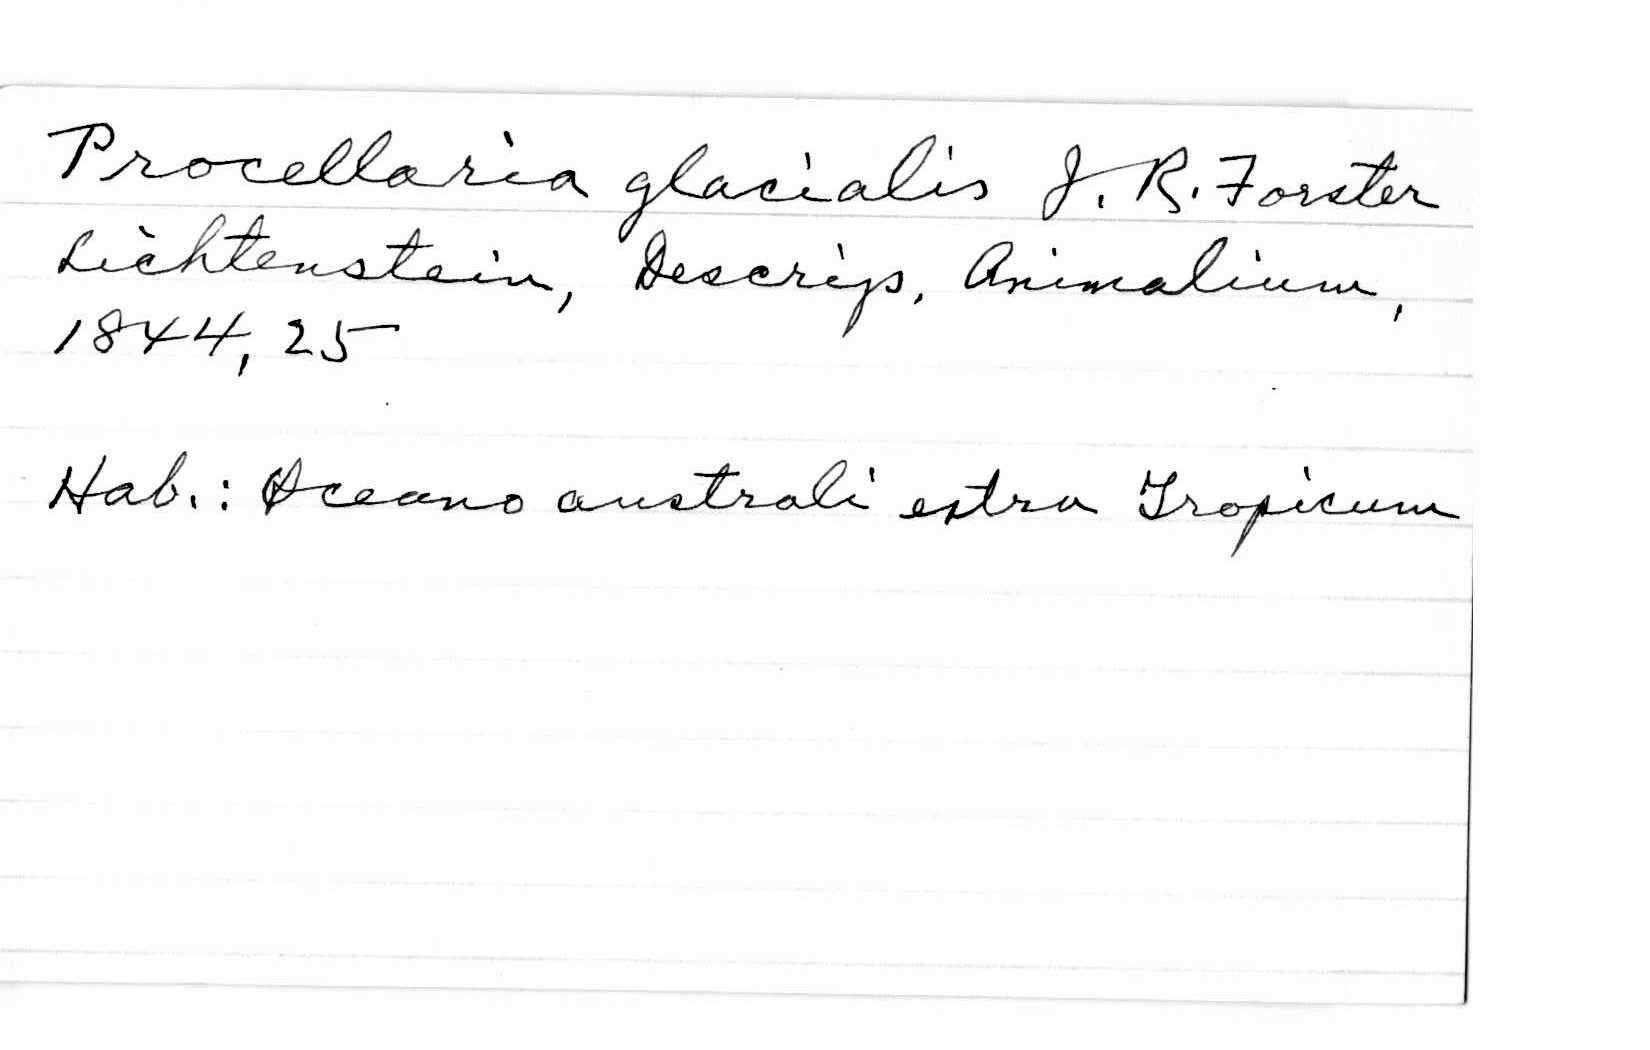 Procellaria glacialis J. R. Forster
Lichtenstein, Descrip. Animalium,
1844, 25
Hab.: Oceano australi extra Tropicum